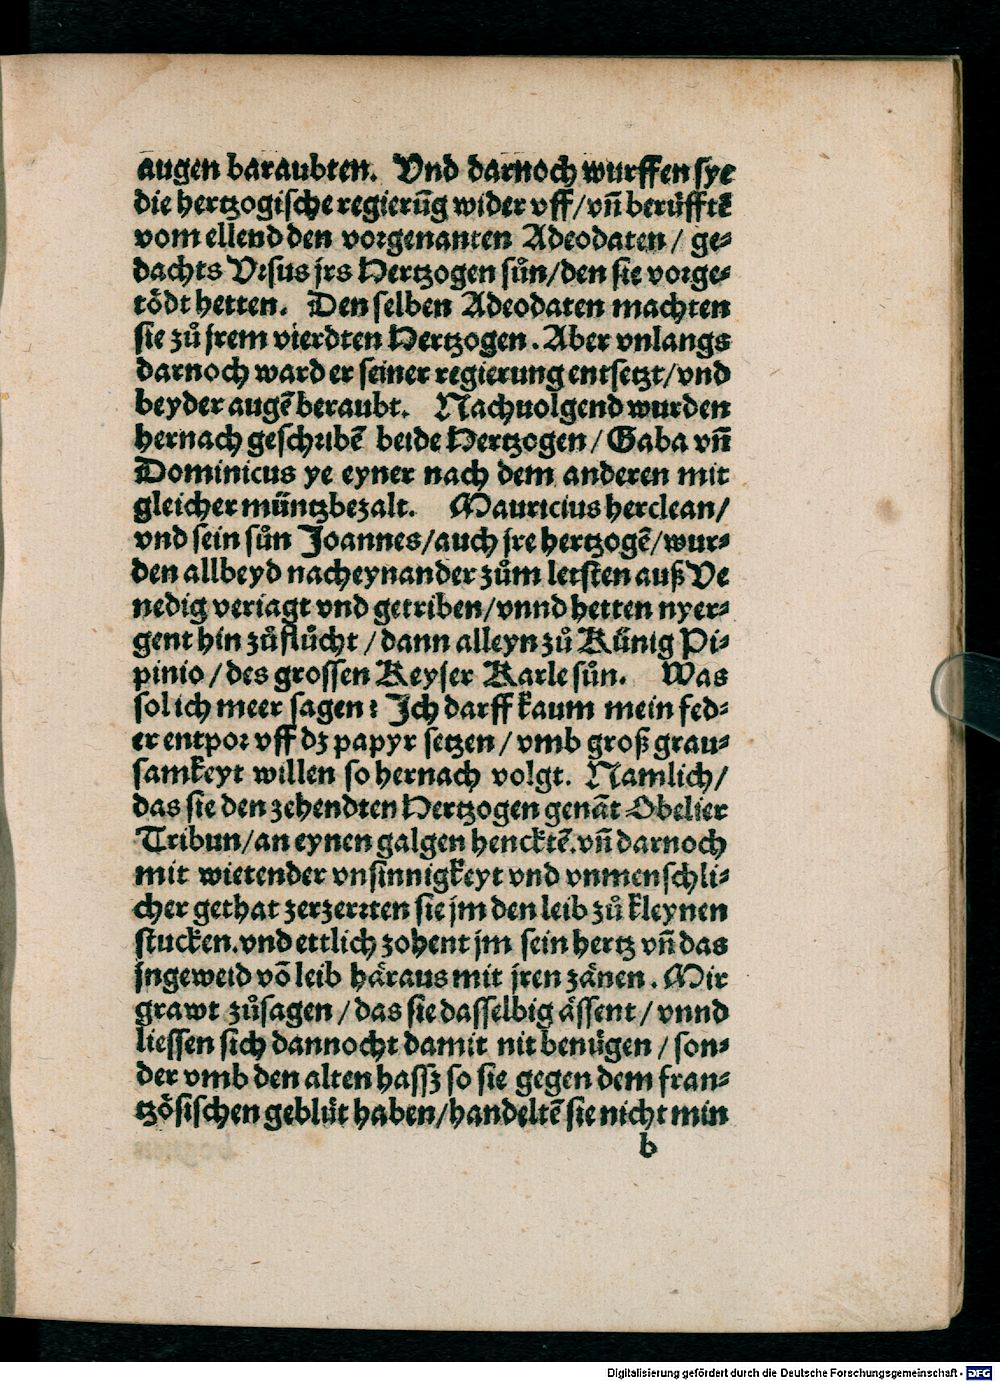 augen baraubten. Vnd darnoch wurffen sye
die hertzogische regierūg wider vff/vn̄ berüfftē
vom ellend den vorgenanten Adeodaten/ ge⸗
dachts Vrsus jrs Hertzogen sůn/den sie vorge⸗
tödt hetten. Den selben Adeodaten machten
sie zů jrem vierdten Hertzogen. Aber vnlangs
darnoch ward er seiner regierung entsetzt/vnd
beyder augē beraubt. Nachuolgend wurden
hernach geschribē beide Hertzogen/ Gaba vn̄
Dominicus ye eyner nach dem anderen mit
gleicher müntz bezalt. Mauricius herclean/
vnd sein sůn Joannes/auch jre hertzogē/wur⸗
den allbeyd nacheynander zům letsten auß Ve
nedig veriagt vnd getriben/vnnd hetten nyer⸗
gent hin zůflůcht/dann alleyn zů Künig Pi⸗
pinio/des grossen Keyser Karle sůn. Was
sol ich meer sagen? Jch darff kaum mein fed⸗
er entpor vff dz papyr setzen/ vmb groß grau⸗
samkeyt willen so hernach volgt. Namlich/
das sie den zehendten Hertzogen genāt Obelier
Tribun/an eynen galgen hencktē.vn̄ darnoch
mit wietender vnsinnigkeyt vnd vnmenschli⸗
cher gethat zerzerrten sie jm den leib zů kleynen
stucken.vnd ettlich zohent jm sein hertz vn̄ das
jngeweid vō leib häraus mit jren zänen. Mir
grawt zůsagen/das sie dasselbig ässent/ vnnd
liessen sich dannocht damit nit benügen/ son⸗
der vmb den alten hassz so sie gegen dem fran⸗
tzösischen geblüt haben/handeltē sie nicht min
b
Digitalisierung gefördert durch die Deutsche Forschungsgemeinschaft - DFG